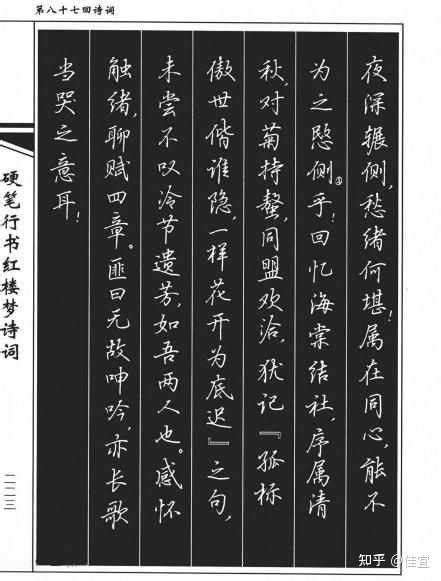 第八十七回诗词
夜深辗侧，愁绪何堪！属在同心，能不
为之愍恻①乎！回忆海棠结社，序属清
秋，对菊持螯，同盟欢洽，犹记『孤标
傲世偕谁隐，一样花开为底迟』之句，
未尝不叹冷节遗芳，如吾两人也。感怀
触绪，聊赋四章。匪曰无故呻吟，亦长歌
当哭之意耳！
硬笔行书红楼梦诗词
二二三
知乎 @佳宜